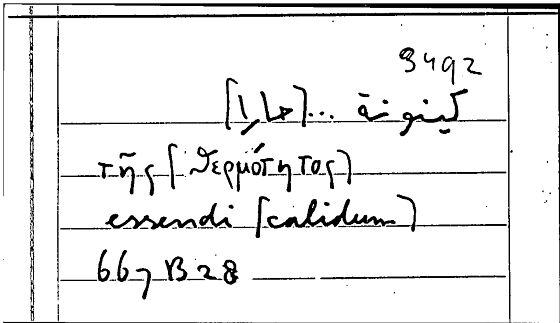 3492
كينونة ... [حارا]
τῆς [θερμότητος]
essendi [calidum]
667 B 28